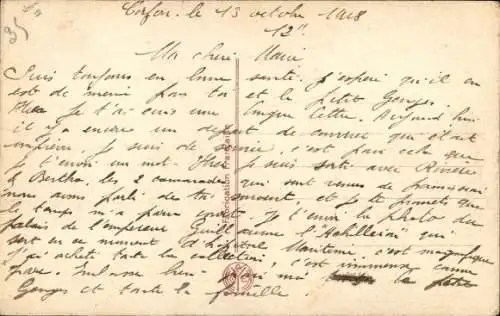 35
Corfou. le 13 octobre 1918
12h
Ma chère Marie,
Suis toujours en bonne santé. J'espère qu'il en
est de même pour toi et le petit Georges.
Hier Je t'ai écris une longue lettre. Aujourd'hui
il y a encore un départ de courrier qui était
imprévu. Je suis de service, c'est pour cela que
je t'envoi un mot. Hier Je suis sorti avec Rivière
& Bertho, les 2 camarades qui sont venus de
nous avons parlé de toi souvent, et je te promets que
le temps m'a paru court. Je t'envoi la photo du
palais de l'empereur Guillaume l'Achilleion qui
sert en ce moment d'hôpital Maritime. c'est magnifique
j'ai acheté toute la collection, c'est immense comme
parc. Embrasse bien pour moi le petit
Georges et toute la famille.
Fabrication Française